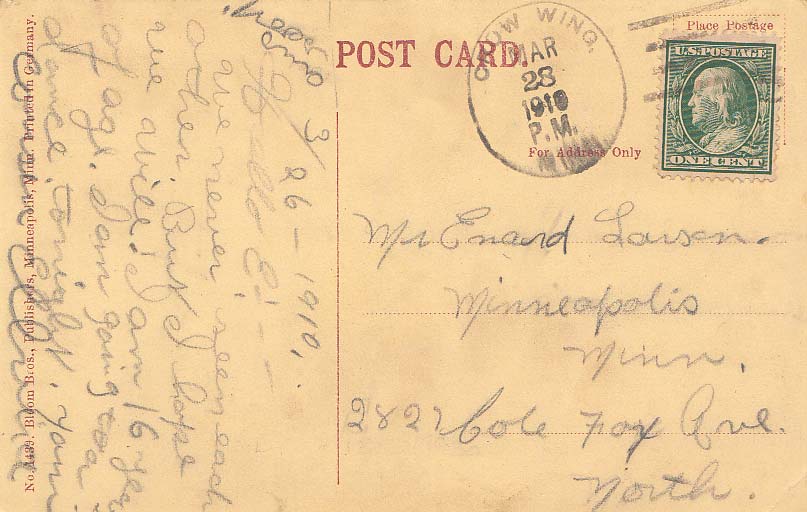 POST CARD.
Place Postage
For Address Only
CROW WING,
MAR
28
1910
P.M.
MINN.
U.S. POSTAGE
ONE CENT
Mr Enard Larsen.
Minneapolis
Minn.
2827 Cole Fox Ave.
North.
3/26-1910.
Hello E---
we never seen each
other. But I hope
we will. I am 16 years
of age. I am going to a
dance tonight.
No. 1439. Bloom Bros., Publishers, Minneapolis, Minn. Printed in Germany.